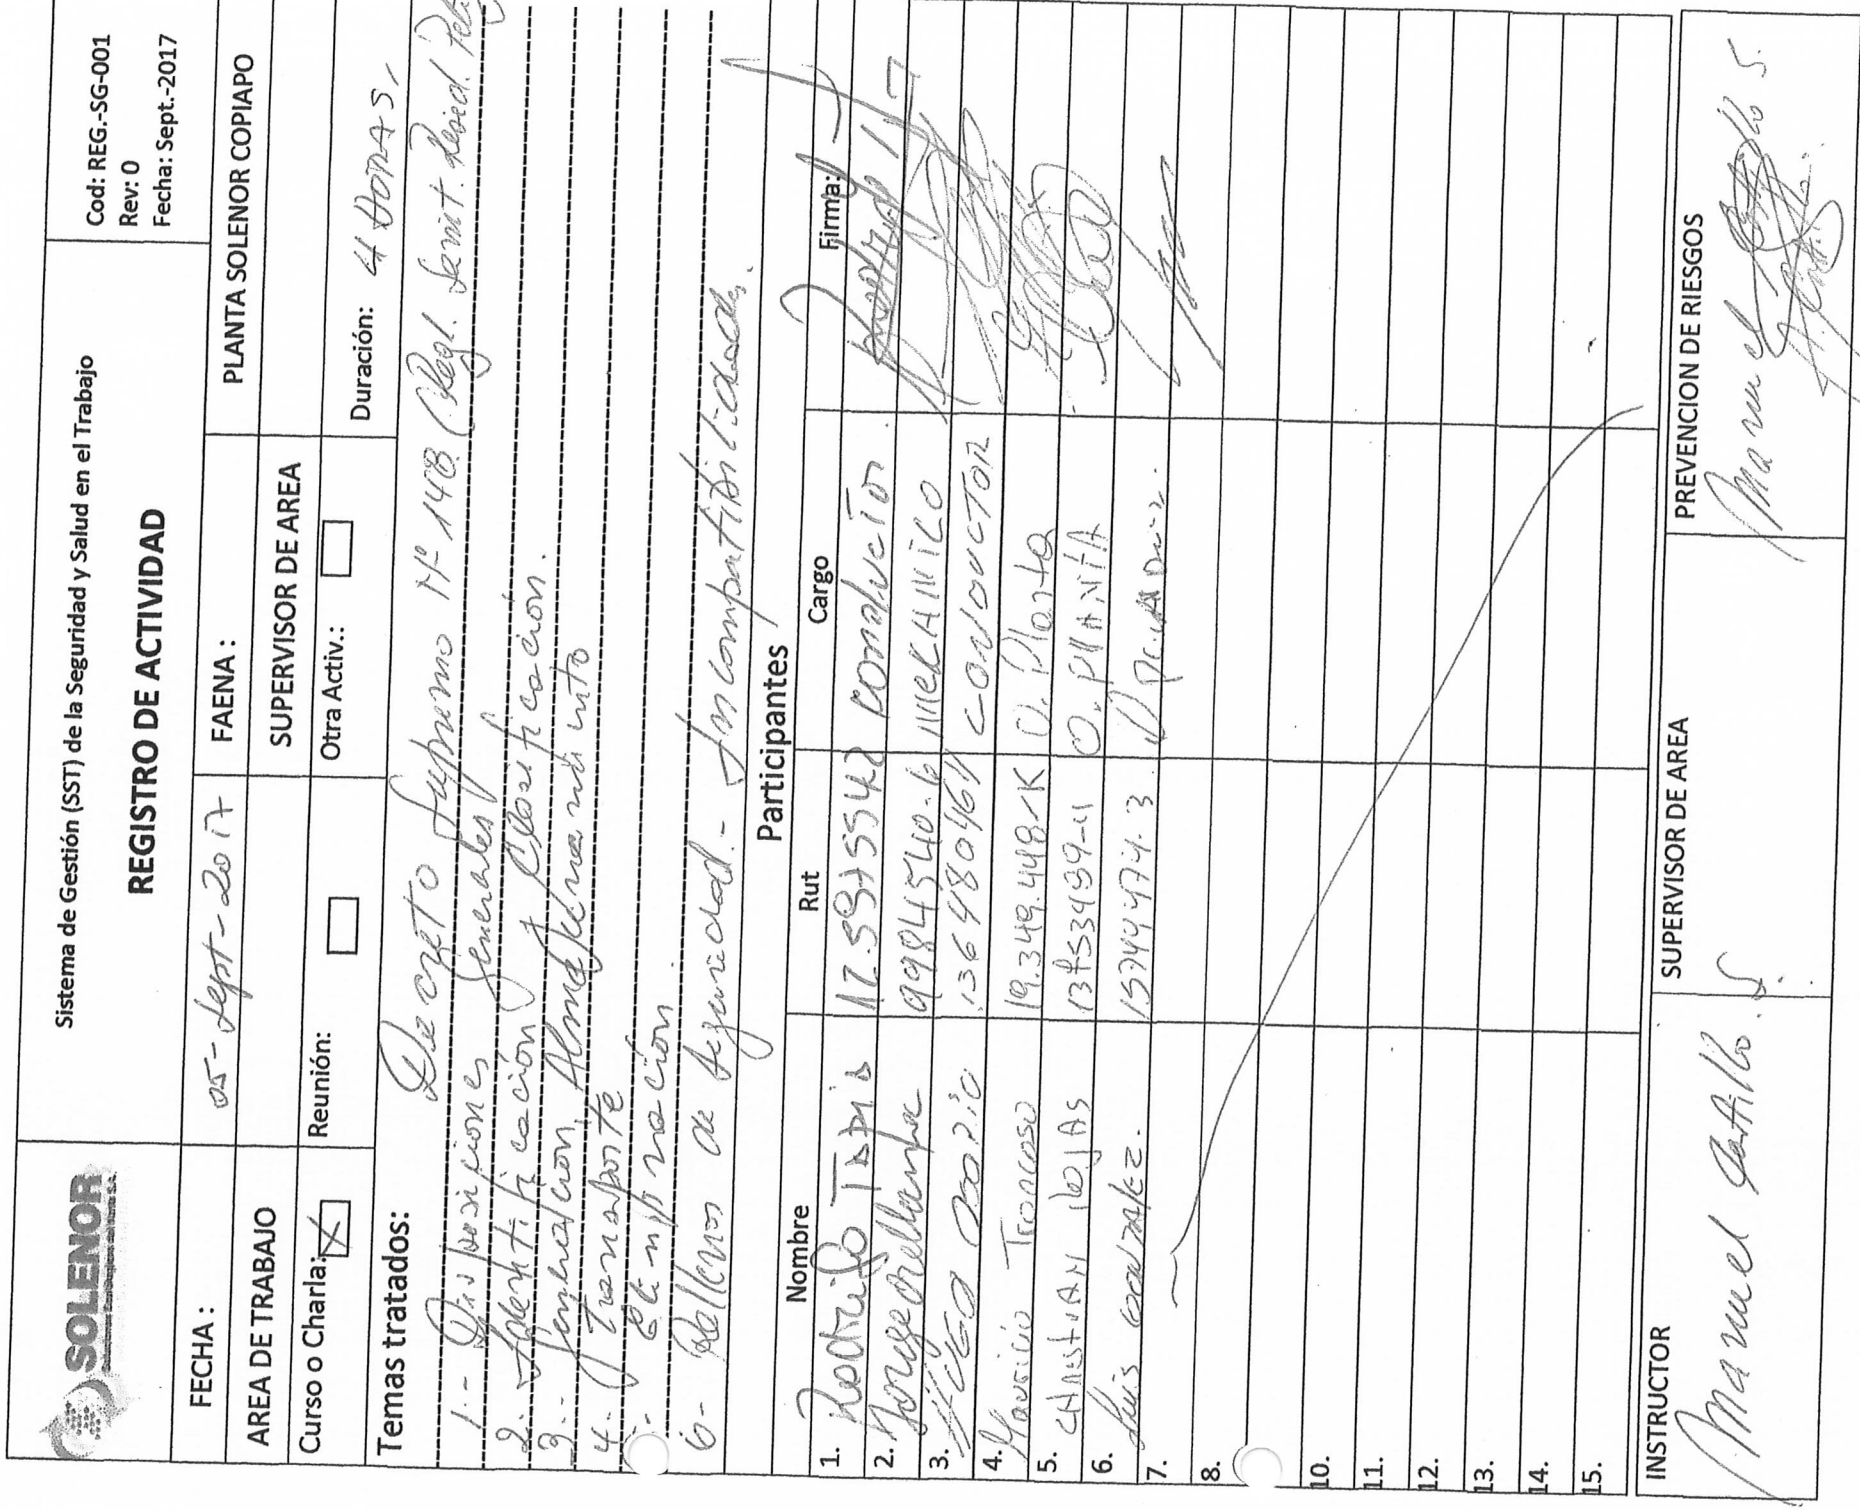 SOLENOR
Sistema de Gestión (SST) de la Seguridad y Salud en el Trabajo
REGISTRO DE ACTIVIDAD
Cod: REG.-SG-001
Rev: 0
Fecha: Sept.-2017
FECHA: 05-Sept-2017 FAENA: PLANTA SOLENOR COPIAPO
AREA DE TRABAJO SUPERVISOR DE AREA
Curso o Charla: X Reunión: Otra Activ.: Duración: 4 Horas,
Temas tratados: Decreto Supremo Nº 148 (Regl. Sanit. Resid. Pelig
1.- Disposiciones Generales
2.- Identificación y Clasificación.
3.- Generación, Almacenamiento
4.- Transporte
5.- Eliminación.
6- Rellenos de Seguridad.- Incompatibilidades.
Participantes
Nombre Rut Cargo Firma:
1. Rodrigo Tapia Conductor
2. Jorge Orellana 9984540-6 MECANICO
3. Hugo Osorio CONDUCTOR
4. Mauricio Troncoso 19.349.448-K O. Planta
5. O. PLANTA
6. Luis Gonzalez. 15744474-3
7.
8.
10.
11.
12.
13.
14.
15.
INSTRUCTOR SUPERVISOR DE AREA PREVENCION DE RIESGOS
Manuel Castillo S. Manuel Castillo S.